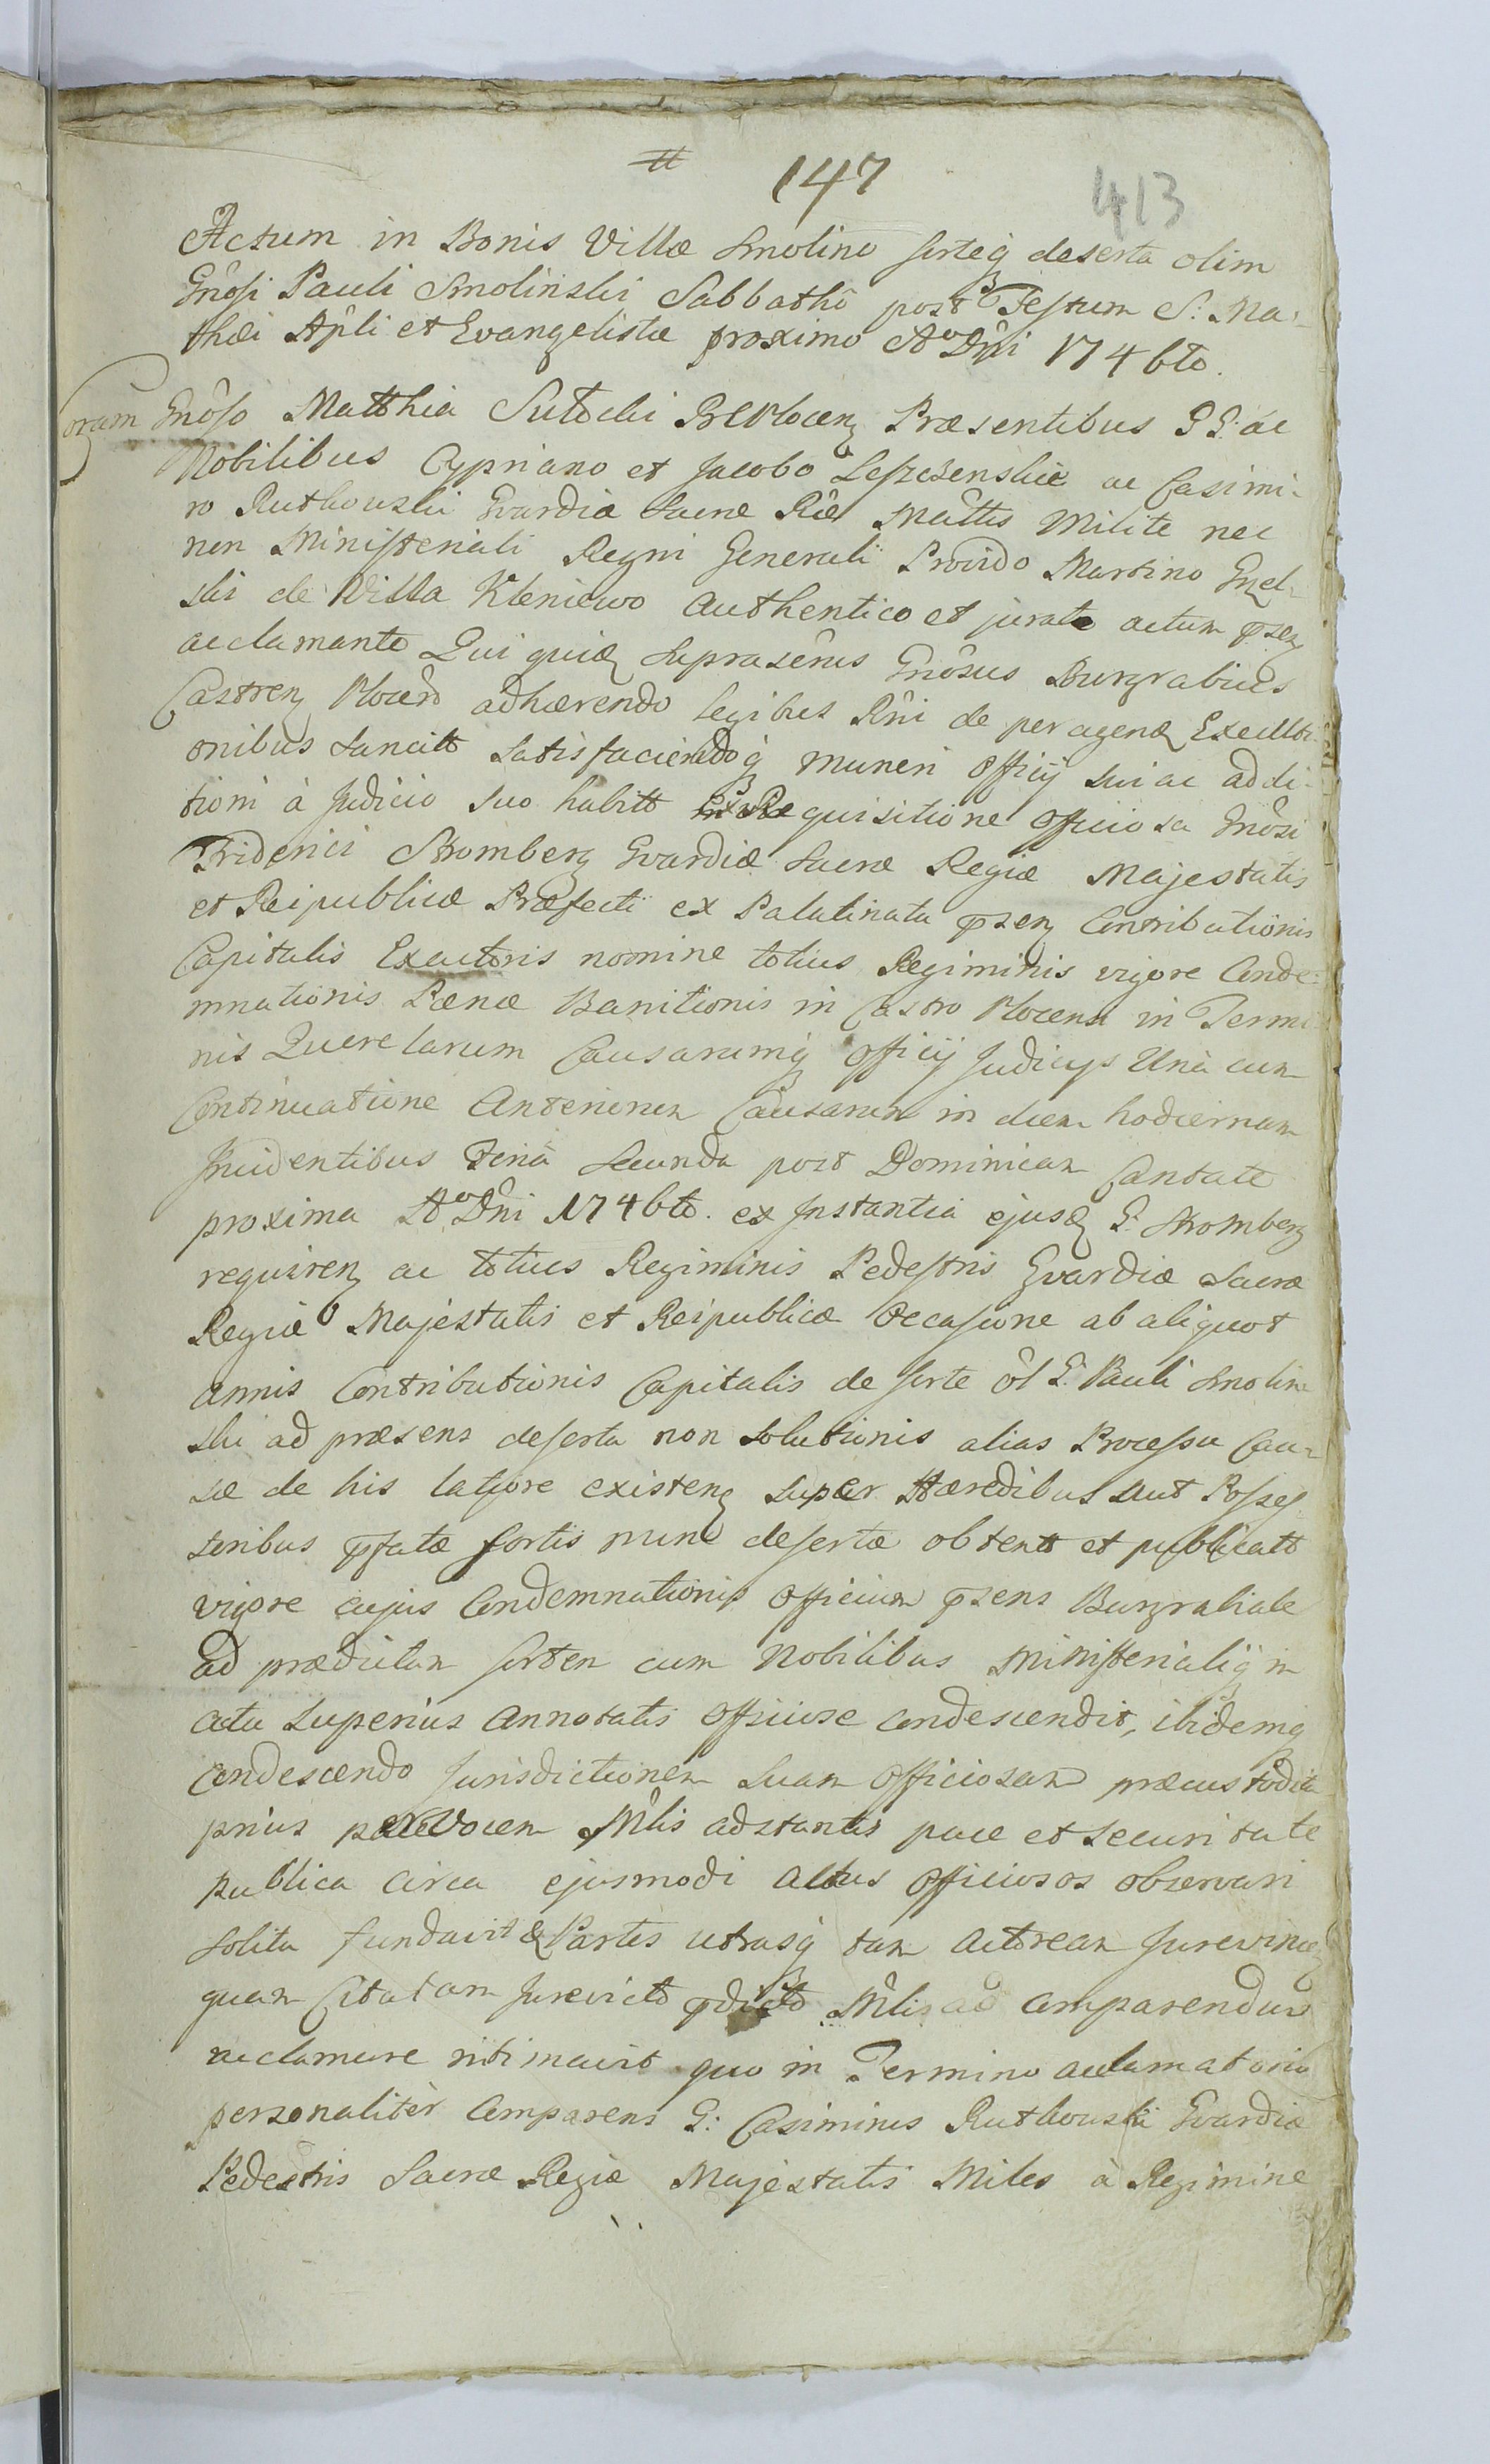 147
413
Actum in Bonis Villæ Smolino sorteq deserta olim
Gnôsi Pauli Smolinski Sabbathô post Festum S: Ma-
thæi Apli et Evangelistæ proximo Aº Dni 1746tô.
Coram Gnôso Matthia Sutocki BCPlocen Præsentibus GG: ac
Nobilibus Cypriano et Jacobo ac Casimi-
ro Rutkowski Gvardiæ Sacræ Ræ Mattis Milite nec
non Ministeriali Regni Generali Provido Martino
ski de Villa Kleniewo authentico et jurato actum psen
acclamante Qui quid suprascrûs Gnôsus Burgrabius
Castren Plocen adhærendo legibus Rni de peragend Executi-
onibus sancitt satisfaciendoq muneri officij sui ac addi-
tioni à Judicio suo habitt ex Requisitione officiosa Gnôsi
Friderici Stromberg Gvardiæ Sacræ Regiæ Majestatis
et Reipublicæ Præfecti ex Palatinatu psen Contributionis
Capitalis Exactoris nomine totius Regiminis vigore Conde-
mnationis Pænæ Banitionis in Castro Plocensi in Termi
nis Querelarum Causarumq officij Judicijs Unà cum
Continuatione Anteriorum Causarum in diem hodiernam
Incidentibus Feriâ Secunda post Dominicam Cantate
proxima Aº Dni 1746tô. ex Instantia ejusd G: Stromberg
requiren ac totius Regiminis Pedestris Gvardiæ Sacræ
Regiæ Majestatis et Reipublicæ Occasione ab aliquot
annis Contributionis Capitalis de sorte ôl G: Pauli Smolin
ski ad præsens deserta non solutionis alias Processu Cau-
sæ de his latiore existen super Hæredibus aut Posses
soribus pfatæ sortis nunc desertæ obtentt et publicatt
vigore cujus Condemnationis officium psens Burgrabiale
ad prædictam sortem cum Nobilibus Ministerialiq in
actu superius annotatis officiose condescendit, ibidemq
condescendo Jurisdictionem suam officiosam præcustodita
prius per vocem Mlis adstantis pace et securitate
publica circa ejusmodi actus officiosos observari
solita fundavit & Partes utrasq tam actoream Jurevincen
quam Citatam Jurevicto pdicto Mlis ad comparendum
acclamare intimavit quo in Termino acclamatorio
personaliter Comparens G: Casimirus Rutkowski Gvardiæ
Pedestris Sacræ Regiæ Majestatis Miles à Regimine